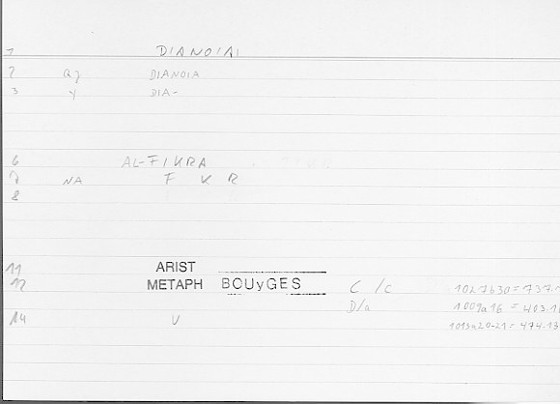 1 DIANOIAI
2 aj DIANOIA
3 y DIA-
6 AL-FIKRA
7 NA F K R
8
11 ARIST
12 METAPH BOUyGES C /c 1027b30=737.
D/a 1009a16 = 403.1
14 V 1013a20-21=474.13